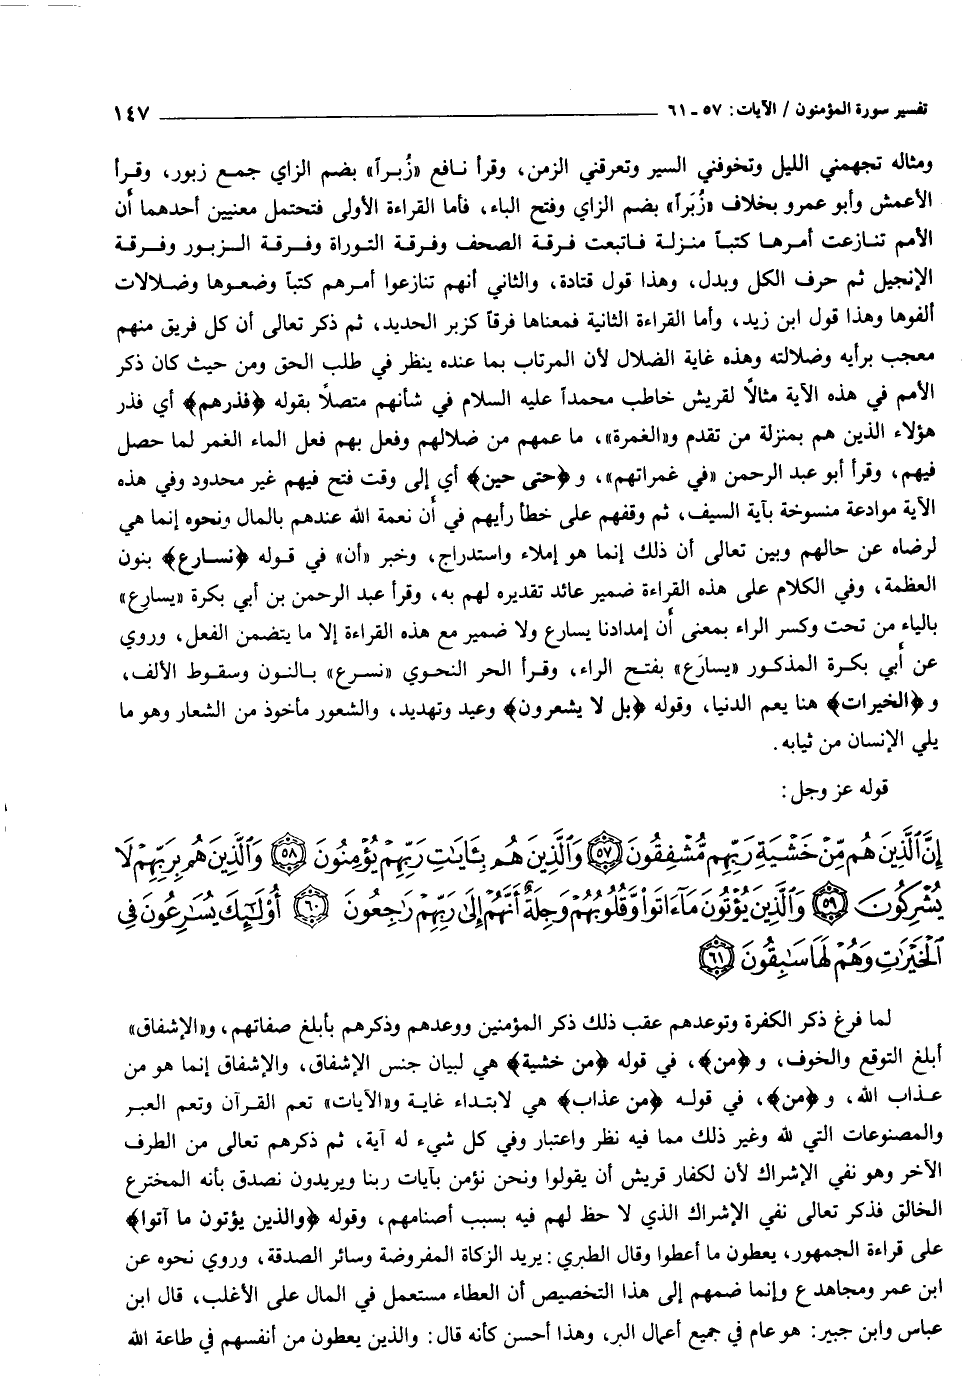 تفسير سورة المؤمنون / الآيات: ٥٧ ـ ٦١ ١٤٧
ومثاله تجهمني الليل وتخوفني السير وتعرقني الزمن، وقرأ نافع «زُبراً» بضم الزاي جمع زبور، وقرأ
الأعمش وأبو عمرو بخلاف «زُبَراً» بضم الزاي وفتح الباء، فأما القراءة الأولى فتحتمل معنيين أحدهما أن
الأمم تنازعت أمرها كتباً منزلة فاتبعت فرقة الصحف وفرقة التوراة وفرقة الزبور وفرقة
الإنجيل ثم حرف الكل وبدل، وهذا قول قتادة، والثاني أنهم تنازعوا أمرهم كتباً وضعوها وضلالات
ألفوها وهذا قول ابن زيد، وأما القراءة الثانية فمعناها فرقاً كزبر الحديد، ثم ذكر تعالى أن كل فريق منهم
معجب برأيه وضلالته وهذه غاية الضلال لأن المرتاب بما عنده ينظر في طلب الحق ومن حيث كان ذكر
الأمم في هذه الآية مثالاً لقريش خاطب محمداً عليه السلام في شأنهم متصلاً بقوله ﴿فذرهم﴾ أي فذر
هؤلاء الذين هم بمنزلة من تقدم و«الغمرة»، ما عمهم من ضلالهم وفعل بهم فعل الماء الغمر لما حصل
فيهم، وقرأ أبو عبد الرحمن «في غمراتهم»، و ﴿حتى حين﴾ أي إلى وقت فتح فيهم غير محدود وفي هذه
الآية موادعة منسوخة بآية السيف، ثم وقفهم على خطأ رأيهم في أن نعمة الله عندهم بالمال ونحوه إنما هي
لرضاه عن حالهم وبين تعالى أن ذلك إنما هو إملاء واستدراج، وخبر «أن» في قوله ﴿نسارع﴾ بنون
العظمة، وفي الكلام على هذه القراءة ضمير عائد تقديره لهم به، وقرأ عبد الرحمن بن أبي بكرة «يسارِع»
بالياء من تحت وكسر الراء بمعنى أن إمدادنا يسارع ولا ضمير مع هذه القراءة إلا ما يتضمن الفعل، وروي
عن أبي بكرة المذكور «يسارَع» بفتح الراء، وقرأ الحر النحوي «نسرع» بالنون وسقوط الألف،
و ﴿الخيرات﴾ هنا يعم الدنيا، وقوله ﴿بل لا يشعرون﴾ وعيد وتهديد، والشعور مأخوذ من الشعار وهو ما
يلي الإنسان من ثيابه.
قوله عز وجل:
إِنَّ ٱلَّذِينَ هُم مِّنْ خَشْيَةِ رَبِّهِم مُّشْفِقُونَ ٥٧ وَٱلَّذِينَ هُم بِـَٔايَـٰتِ رَبِّهِمْ يُؤْمِنُونَ ٥٨ وَٱلَّذِينَ هُم بِرَبِّهِمْ لَا
يُشْرِكُونَ ٥٩ وَٱلَّذِينَ يُؤْتُونَ مَآ ءَاتَوا۟ وَّقُلُوبُهُمْ وَجِلَةٌ أَنَّهُمْ إِلَىٰ رَبِّهِمْ رَٰجِعُونَ ٦٠ أُو۟لَـٰٓئِكَ يُسَـٰرِعُونَ فِى
ٱلْخَيْرَٰتِ وَهُمْ لَهَا سَـٰبِقُونَ ٦١
لما فرغ ذكر الكفرة وتوعدهم عقب ذلك ذكر المؤمنين ووعدهم وذكرهم بأبلغ صفاتهم، و«الإشفاق»
أبلغ التوقع والخوف، و ﴿من﴾، في قوله ﴿من خشية﴾ هي لبيان جنس الإشفاق، والإشفاق إنما هو من
عذاب الله، و ﴿من﴾، في قوله ﴿من عذاب﴾ هي لابتداء غاية و«الآيات» تعم القرآن وتعم العبر
والمصنوعات التي لله وغير ذلك مما فيه نظر واعتبار وفي كل شيء له آية، ثم ذكرهم تعالى من الطرف
الآخر وهو نفي الإشراك لأن لكفار قريش أن يقولوا ونحن نؤمن بآيات ربنا ويريدون نصدق بأنه المخترع
الخالق فذكر تعالى نفي الإشراك الذي لا حظ لهم فيه بسبب أصنامهم، وقوله ﴿والذين يؤتون ما آتوا﴾
على قراءة الجمهور، يعطون ما أعطوا وقال الطبري: يريد الزكاة المفروضة وسائر الصدقة، وروي نحوه عن
ابن عمر ومجاهد ع وإنما ضمهم إلى هذا التخصيص أن العطاء مستعمل في المال على الأغلب، قال ابن
عباس وابن جبير: هو عام في جميع أعمال البر، وهذا أحسن كأنه قال: والذين يعطون من أنفسهم في طاعة الله